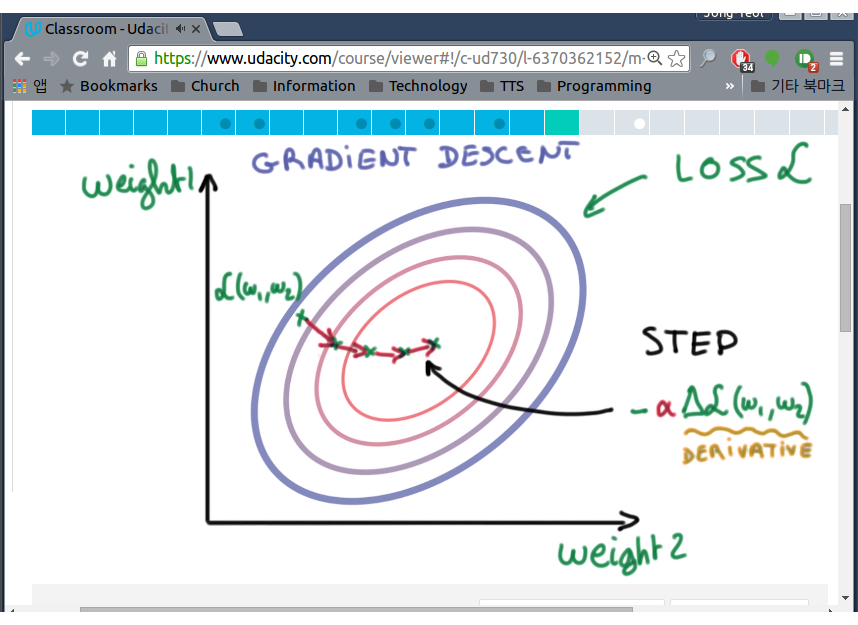 Jong Yeol
Classroom - Udacit
https://www.udacity.com/course/viewer#!/c-ud730/l-6370362152/m-
34
2
앱 Bookmarks Church Information Technology TTS Programming » 기타 북마크
GRADIENT DESCENT
LOSS ℒ
weight1
ℒ(w₁,w₂)
STEP
- α Δℒ(w₁,w₂)
DERIVATIVE
weight2